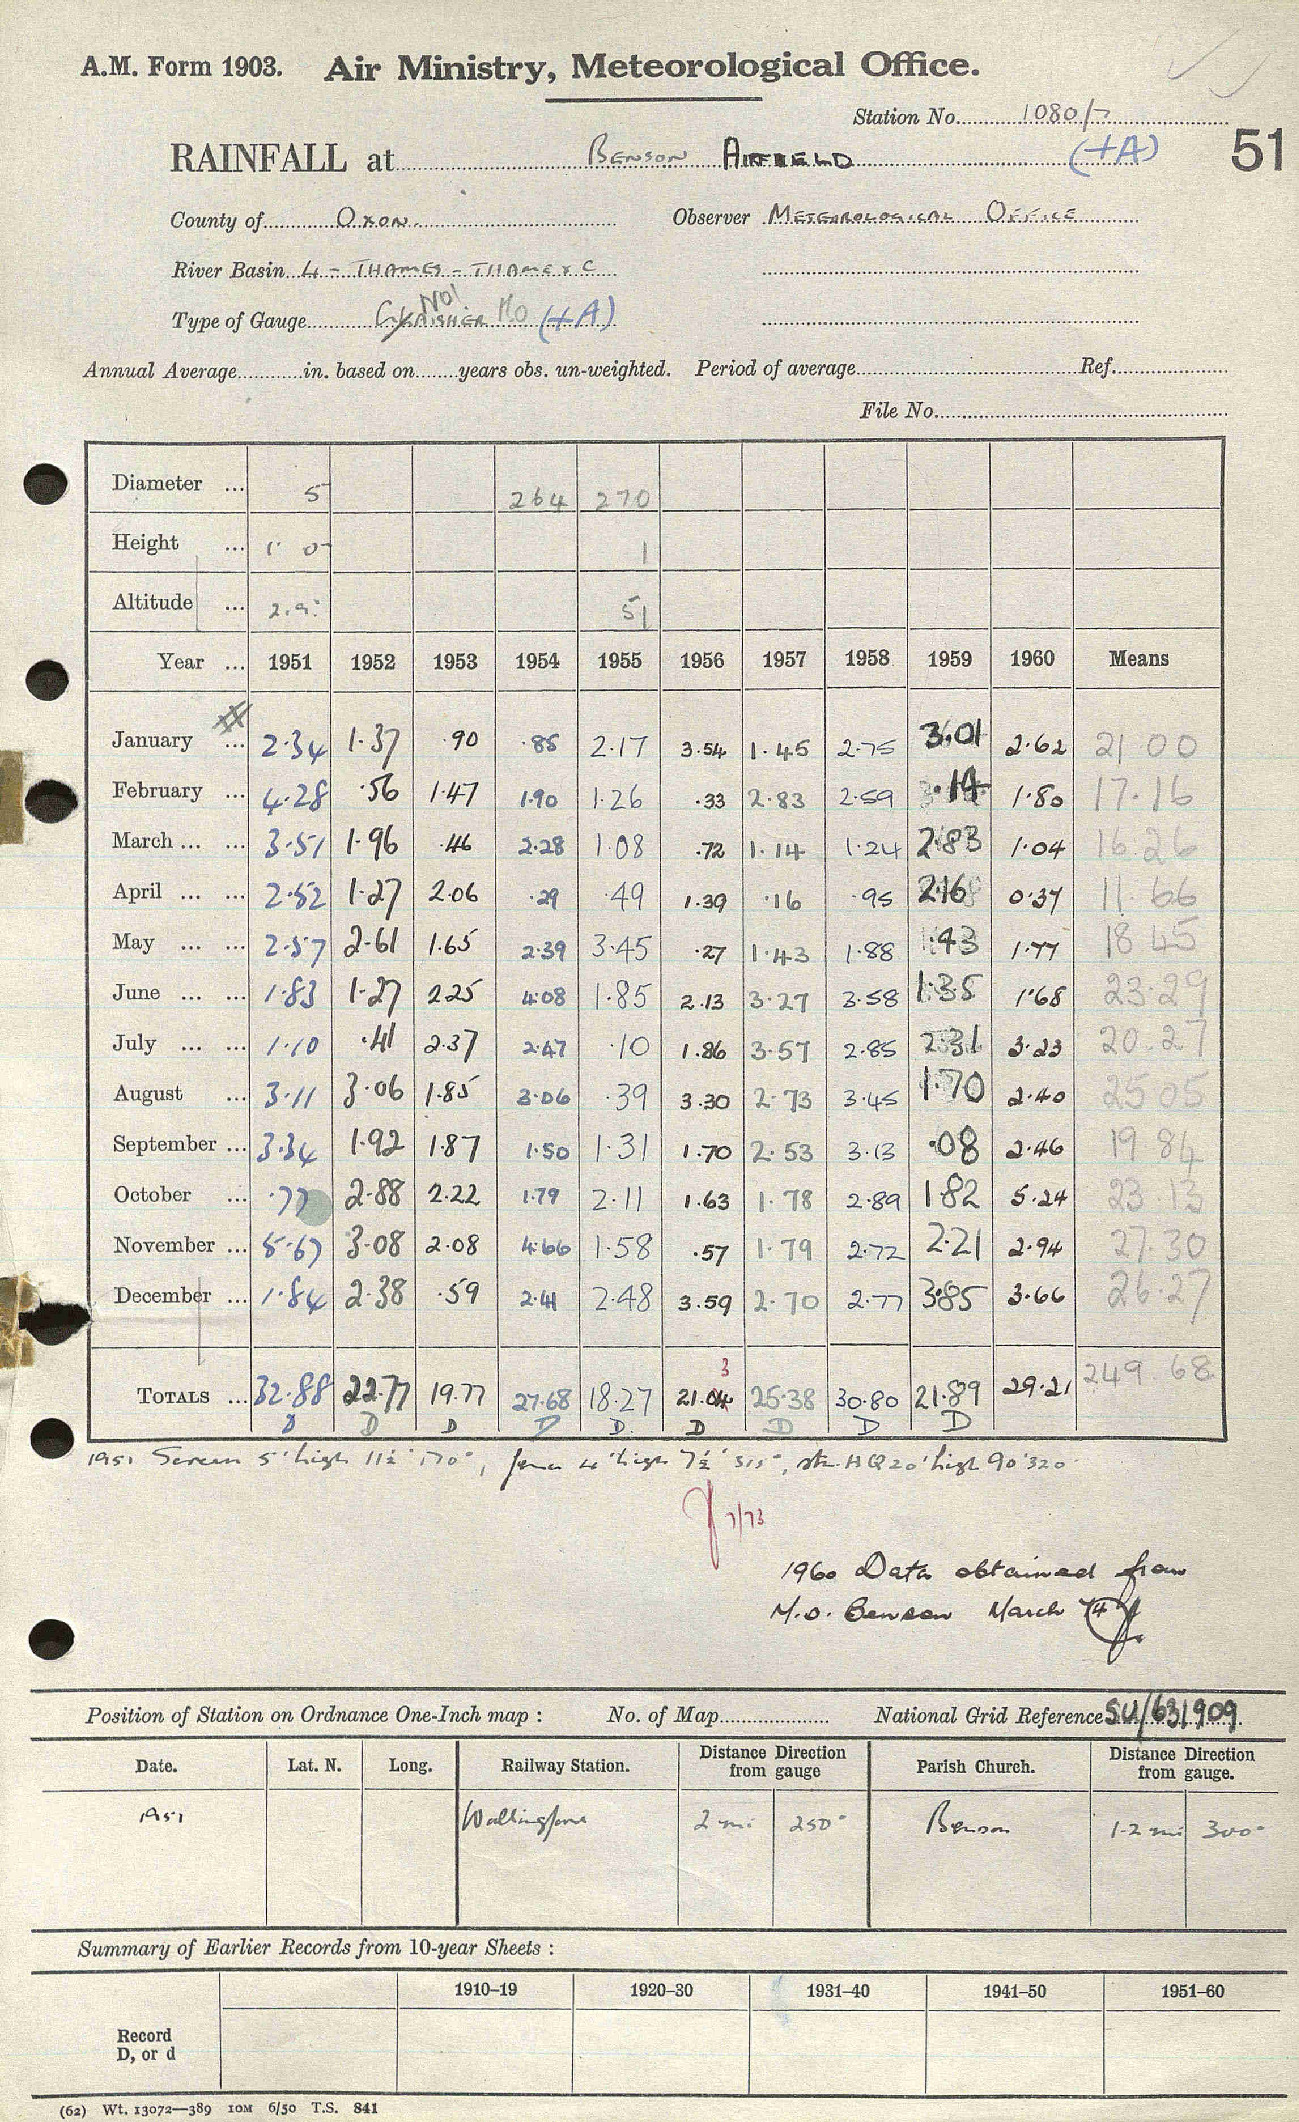 A.M. Form 1903. Air Ministry, Meteorological Office.
Station No. 1080/7
RAINFALL at BENSON AIRFIELD (+A) 51
County of OXON. Observer METEOROLOGICAL OFFICE
River Basin 4 - THAMES - THAME & C
Type of Gauge No! MO (+A)
Annual Average in. based on years obs. un-weighted. Period of average Ref.
File No.
Diameter ... 5 264 270
Height ... 1' 0" 1
Altitude ... 51
Year ... 1951 1952 1953 1954 1955 1956 1957 1958 1959 1960 Means
January ... 2.34 1.37 .90 .85 2.17 3.54 1.45 2.75 3.01 2.62 21 00
February ... 4.28 .56 1.47 1.90 1.26 .33 2.83 2.59 .14 1.80 17.16
March ... ... 3.51 1.96 .46 2.28 1.08 .72 1.14 1.24 2.83 1.04 16.26
April ... ... 2.52 1.27 2.06 .29 .49 1.39 .16 .95 2.16 0.37 11.66
May ... ... 2.57 2.61 1.65 2.39 3.45 .27 1.43 1.88 1.43 1.77 18 45
June ... ... 1.83 1.27 2.25 4.08 1.85 2.13 3.27 3.58 1.35 1.68 23.29
July ... ... 1.10 .41 2.37 2.47 .10 1.86 3.57 2.85 2.31 3.23 20.27
August ... 3.11 3.06 1.85 3.06 .39 3.30 2.73 3.45 1.70 2.40 25 05
September ... 3.34 1.92 1.87 1.50 1.31 1.70 2.53 3.13 .08 2.46 19 84
October ... .77 2.88 2.22 1.79 2.11 1.63 1.78 2.89 1.82 5.24 23 13
November ... 5.67 3.08 2.08 4.66 1.58 .57 1.79 2.72 2.21 2.94 27.30
December ... 1.84 2.38 .59 2.41 2.48 3.59 2.70 2.77 3.85 3.66 26.27
3
TOTALS ... 32.88 22.77 19.77 27.68 18.27 21.04 25.38 30.80 21.89 29.21 249 68
D D D D D D D D D
1951 Screen 5' high 11½' 170°, fence 4' high 7½' 315°, HQ 20' high 90' 320°
7/73
1960 Data obtained from
M.O. Benson March 74
Position of Station on Ordnance One-Inch map : No. of Map National Grid Reference SU/631909
Date. Lat. N. Long. Railway Station. Distance Direction from gauge Parish Church. Distance Direction from gauge.
1951 Wallingford 2 mi 250° Benson 1.2 mi 300°
Summary of Earlier Records from 10-year Sheets :
1910–19 1920–30 1931–40 1941–50 1951–60
Record
D, or d
(62) Wt. 13072—389 10M 6/50 T.S. 841